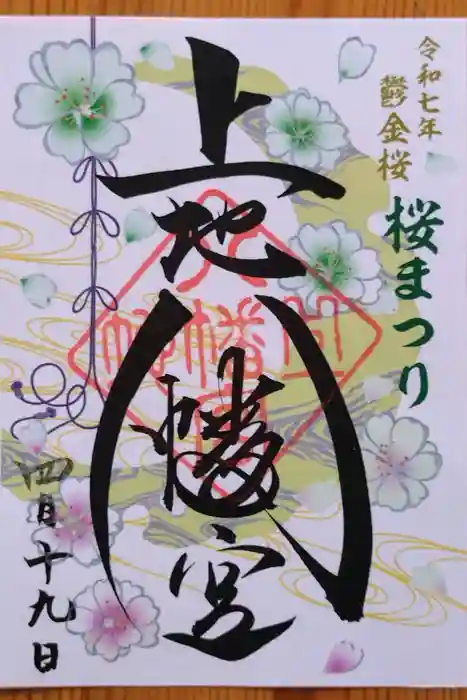 令和七年
鬱金桜
桜まつり
上地八幡宮
四月十九日